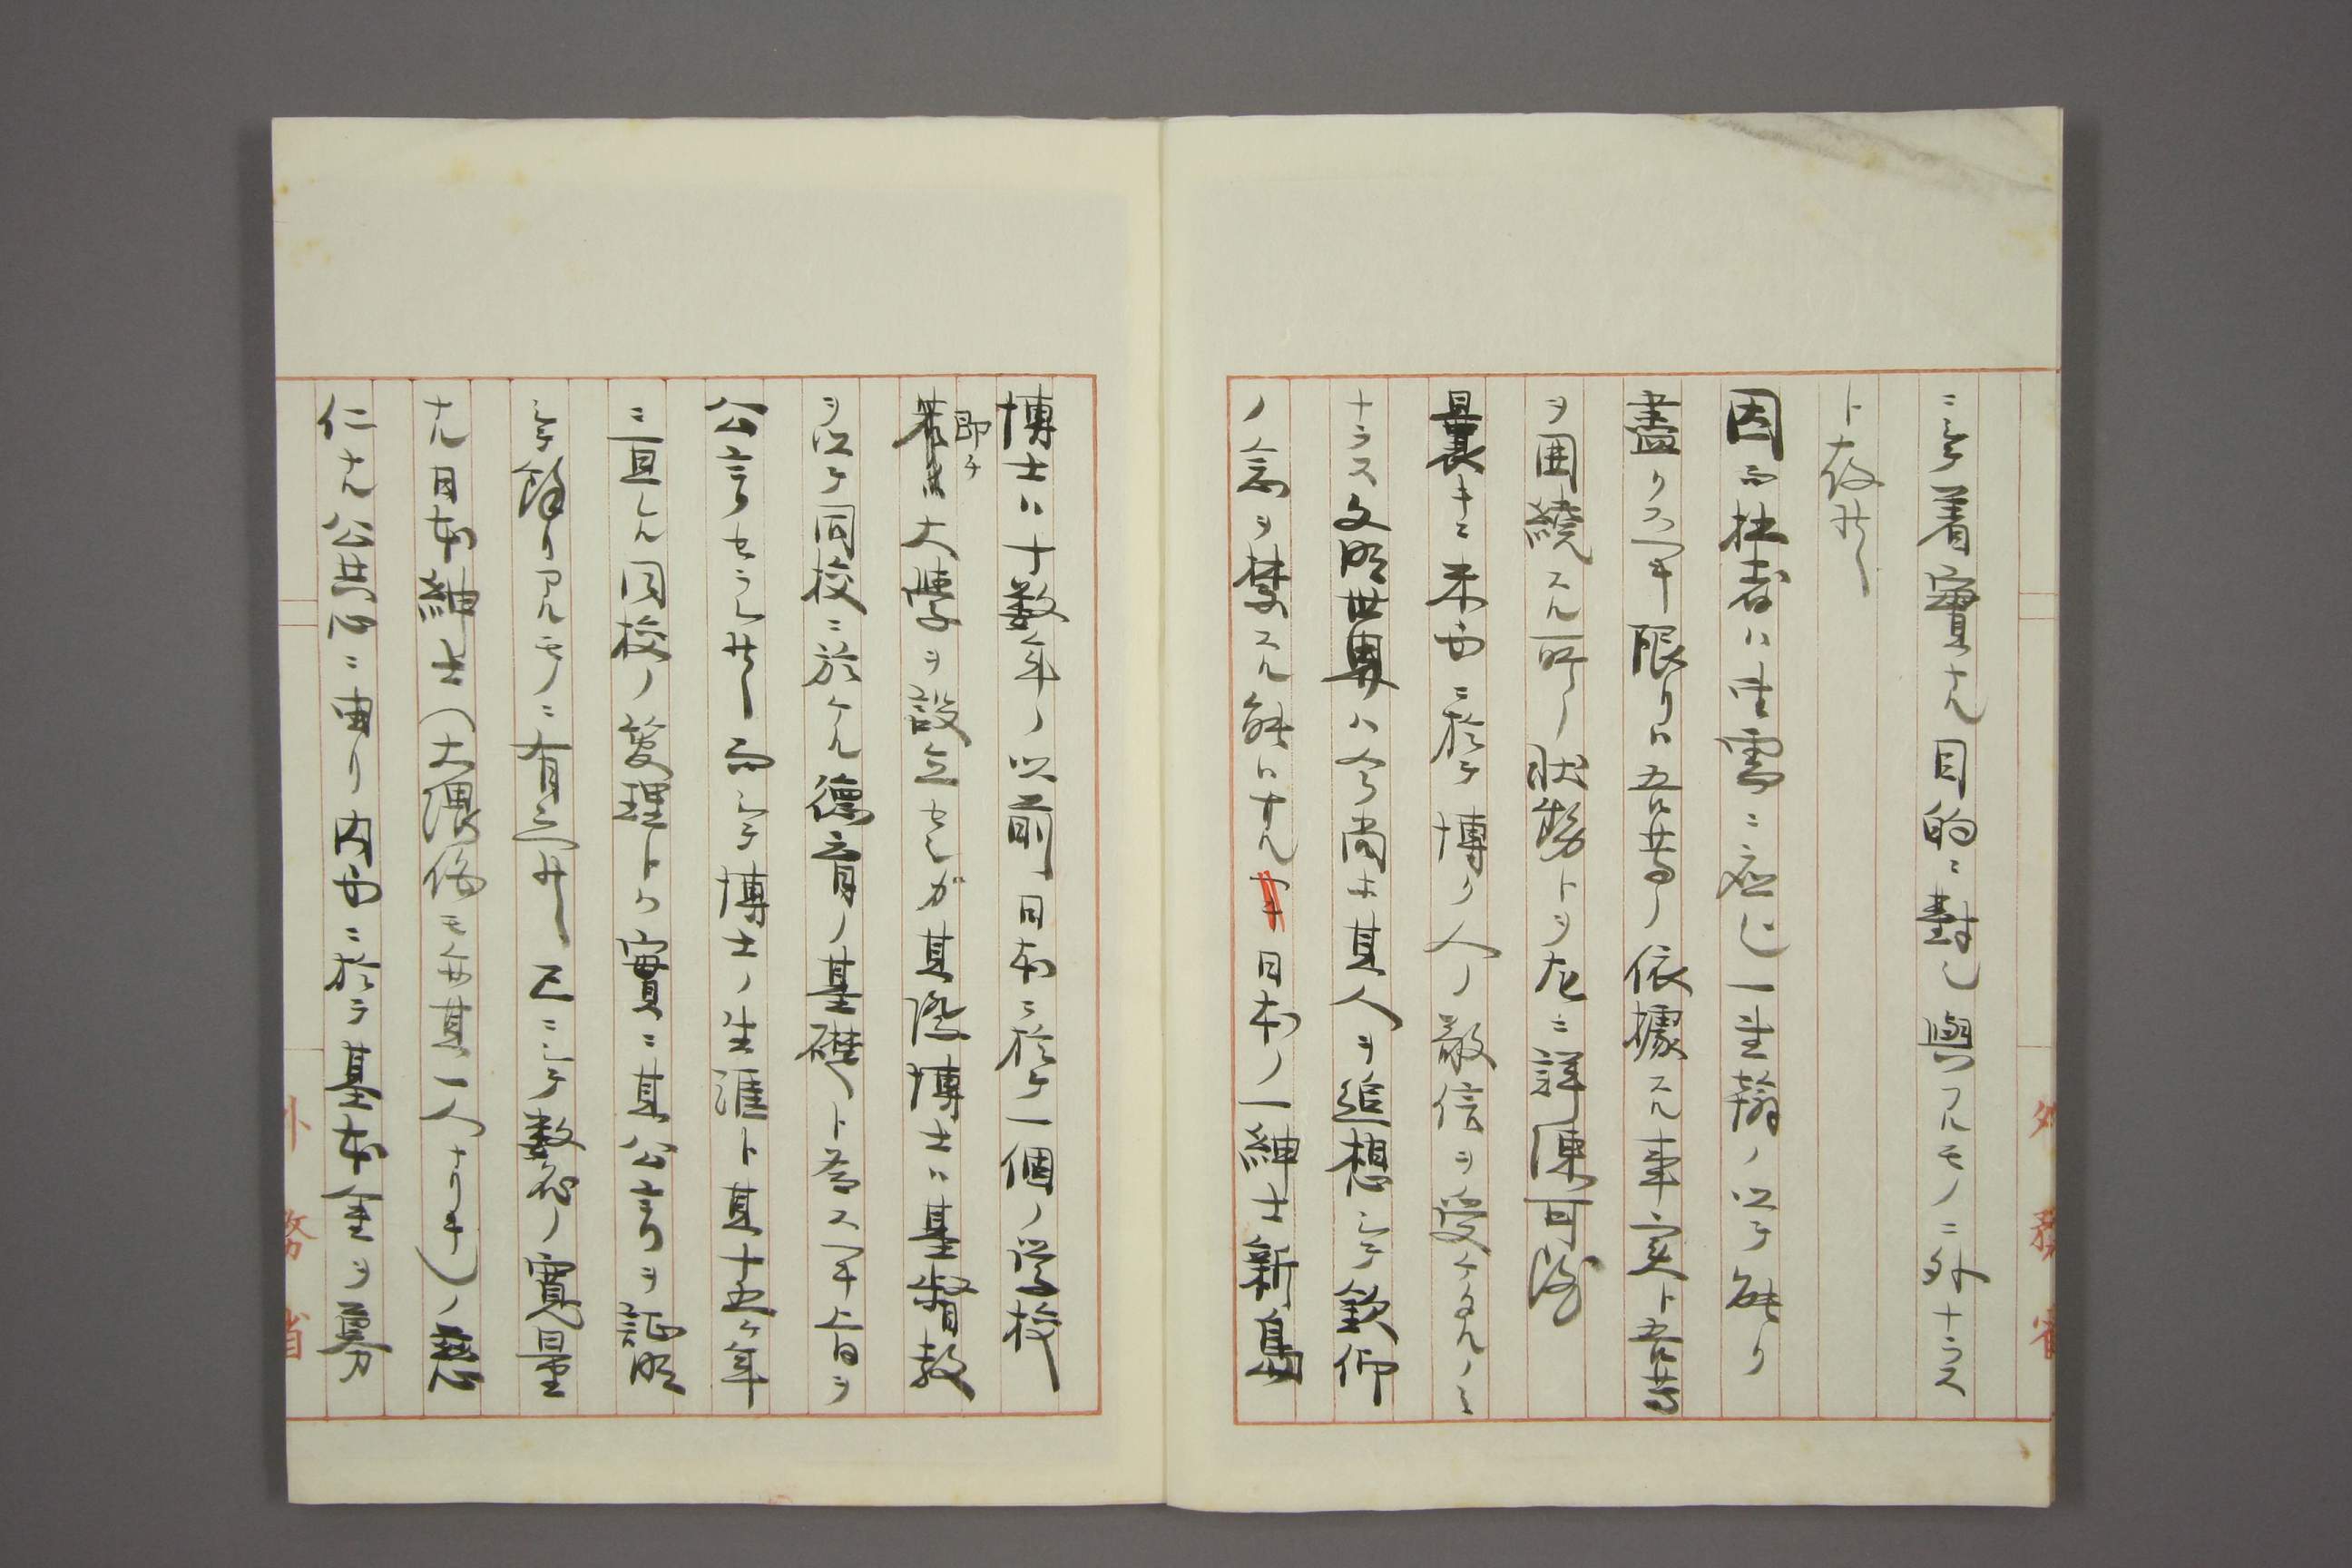 ニシテ着實ナル目的ニ對シ與フルモノニ外ナラス
ト存候
因而拙者ハ此需ニ應シ一書翰ノ以テ能ク
盡クスヘキ限リハ吾等ノ依據スル事実ト吾等
ヲ囲繞スル所ノ状勢トヲ左ニ詳陳可致
曩キニ米国ニ於テ博ク人ノ敬信ヲ受ケタルノミ
ナラス文明世界ハ今尚ホ其人ヲ追想シテ欽仰
ノ念ヲ禁スル能ハサル日本ノ一紳士新島
博士ハ十数年ノ以前日本ニ於テ一個ノ学校
即チ大學ヲ設立セシガ其際博士ハ基督教
ヲ以テ同校ニ於ケル徳育ノ基礎ト為スヘキ旨ヲ
公言セラレ候而シテ博士ノ生涯ト其十五ヶ年
ニ亘ル同校ノ管理トハ實ニ其公言ヲ証明
シテ餘リアルモノニ有之候已ニシテ数名ノ寛量
ナル日本紳士(大隈伯モ亦其一人ナリキ)ノ慈
仁ナル公共心ニ由リ内国ニ於テ基本金ヲ募
外務省
外務省